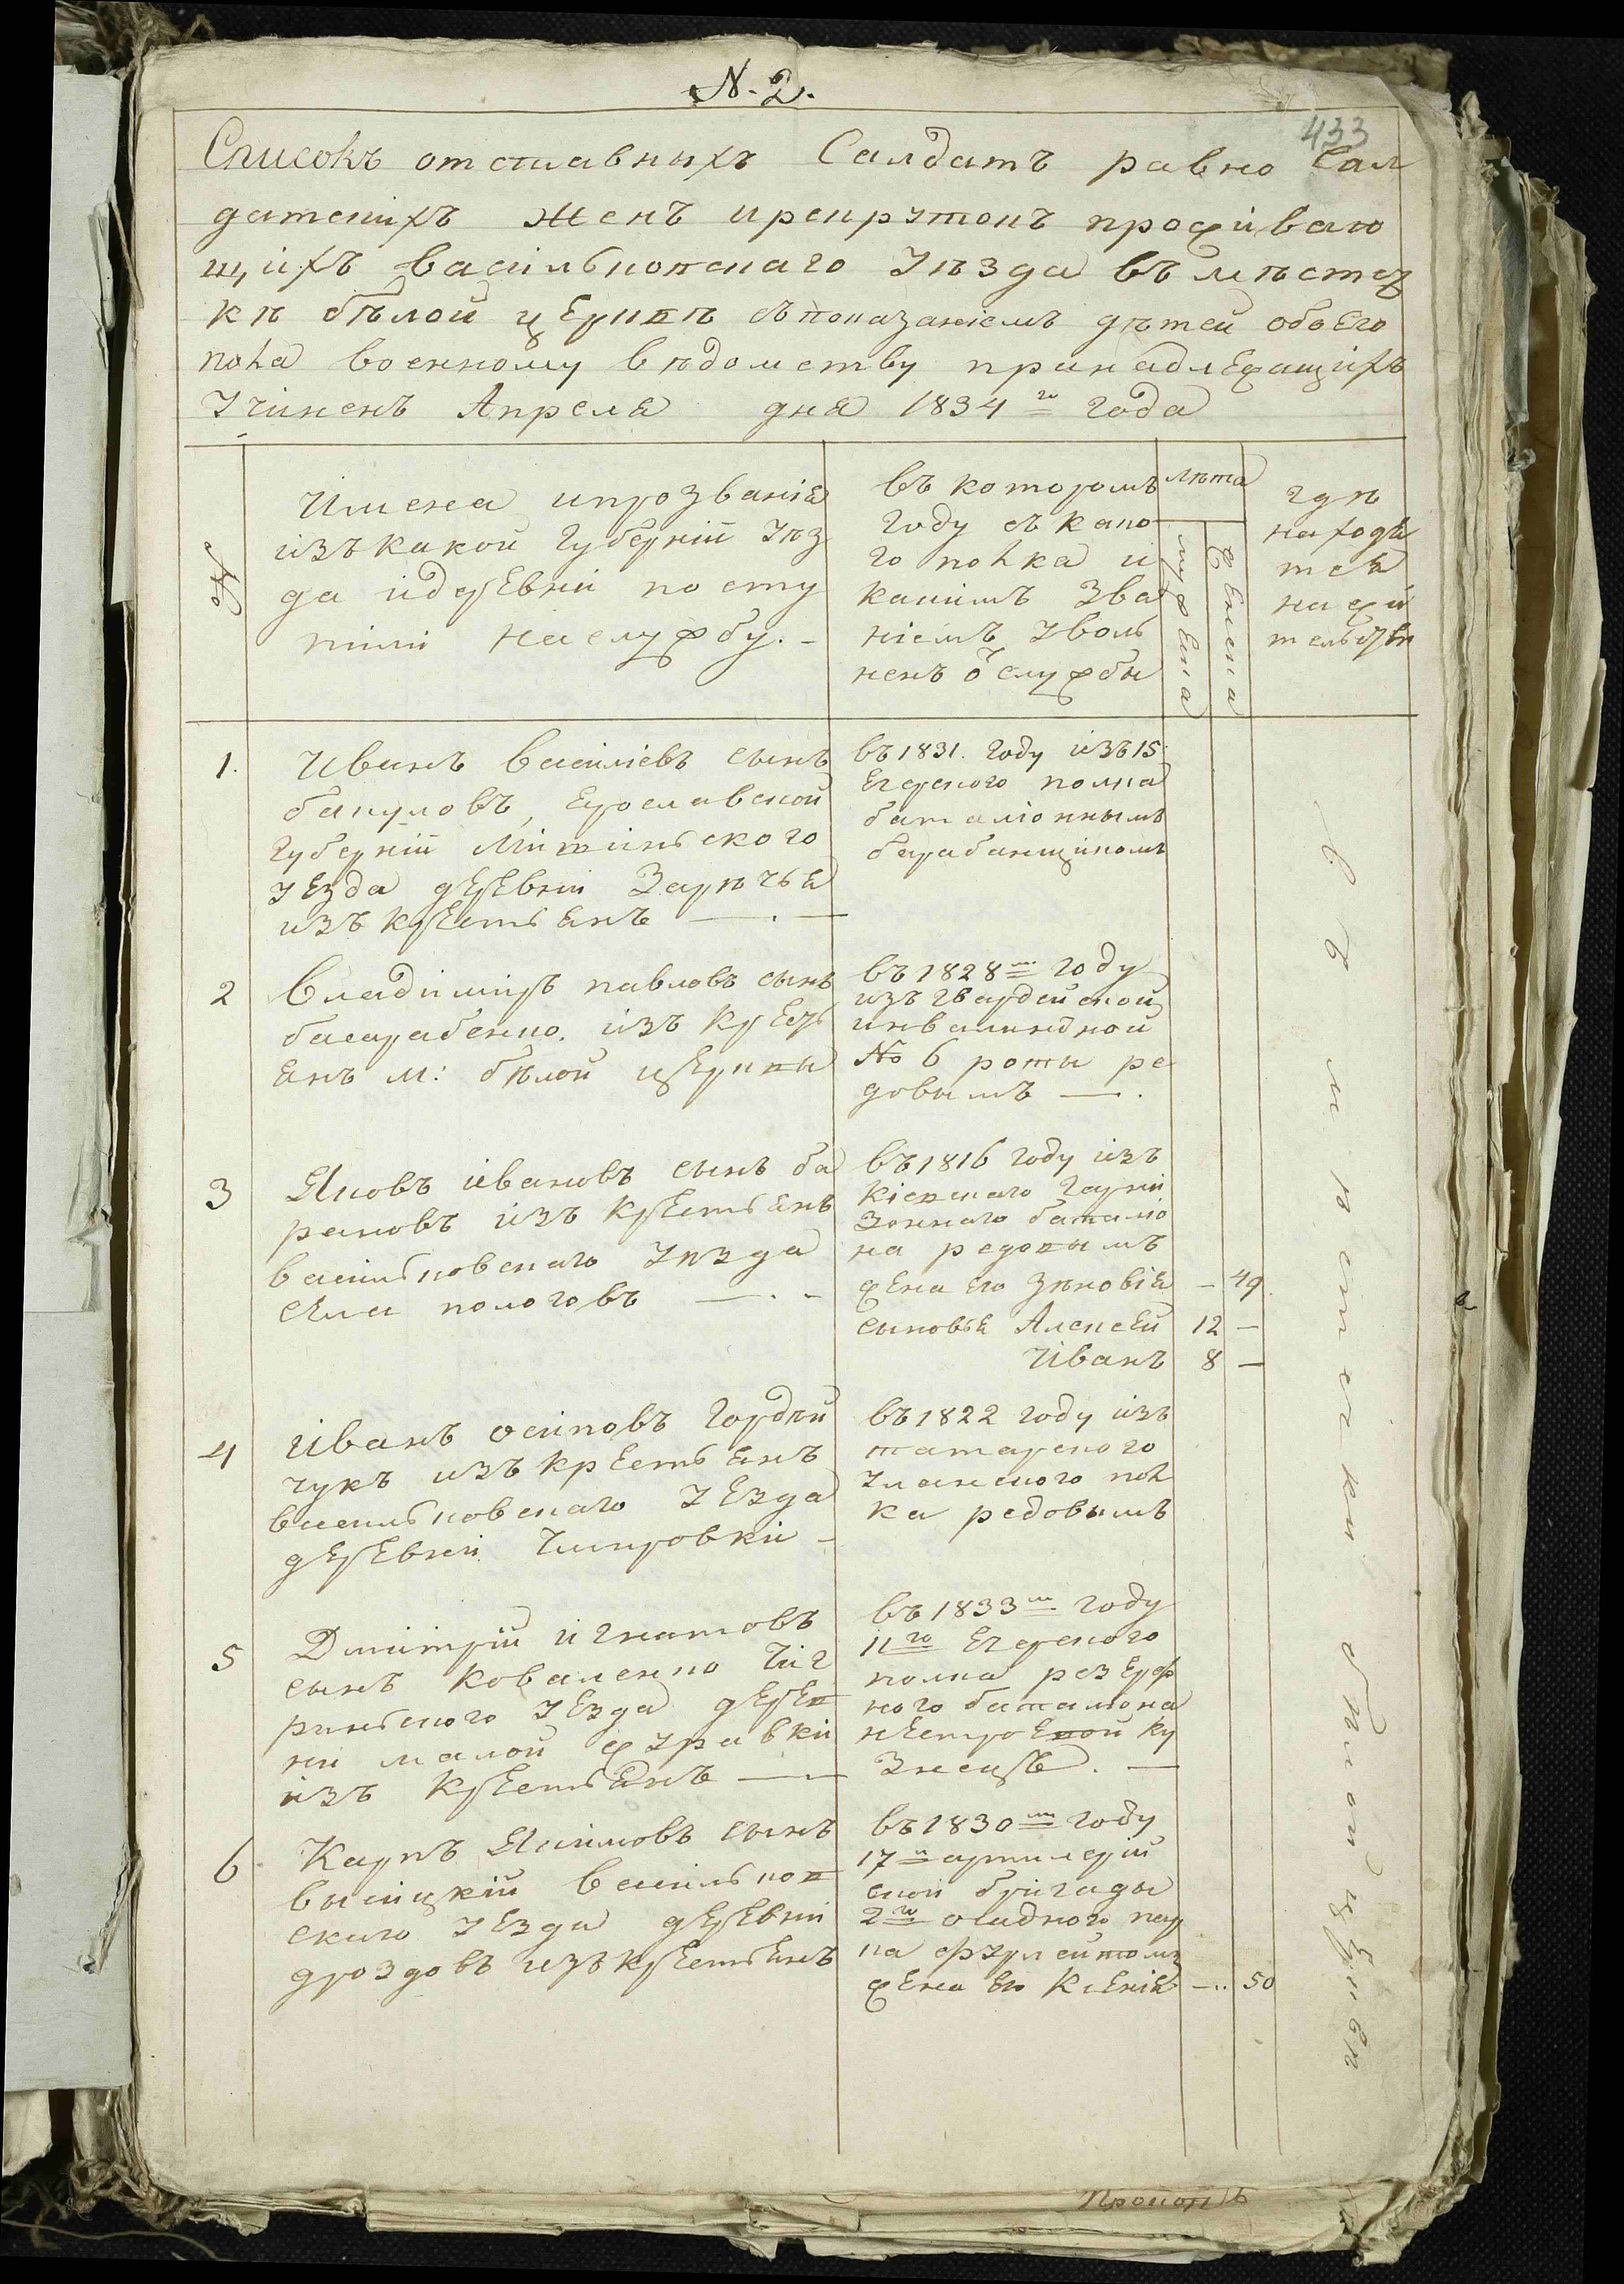 N. 2.
433
Списокъ отставныхъ Салдатъ равно Сал
датскихъ женъ ирекрутокъ проживаю
щихъ васильковскаго Уѣзда въ мѣстеч
кѣ бѣлой церквѣ съпоказаніемъ дѣтей обоего
пола военному вѣдомству принадлежащихъ
Учиненъ Апреля дня 1834го года
№
Имена ипрозванія
изъкакой губерніи Уѣз
да идеревни посту
пили наслужбу. –
въ которомъ
году съ како
го полка и
какимъ зва
ніемъ уволь
ненъ от службы
лѣта
мужеска
женска
гдѣ
находя
тся
на жи
тельствѣ
1.
Иванъ Василіевъ сынъ
бакуловъ, Ерославской
губерніи
уезда деревни Зарѣчья
изъ крестьянъ —.—
въ 1831. году изъ 15
Егерского полка
баталіоннымъ
барабанщикомъ
2
Владимиръ павловъ сынъ
басарабенко. изъ крест
янъ м: бѣлой церкви
въ 1828м году
изъ гвардейской
инвалидной
№ 6 роты ре
довымъ —.
3
Яковъ ивановъ сынъ ба
рановъ изъ крестьянъ
васильковскаго Уѣзда
села пологовъ —.-
въ 1816 году изъ
кіевскаго гарни
зоннаго баталіо
на редовымъ
жена его Зѣновія – 49
сыновья Алексей 12 –
Иванъ 8 –
4
Иванъ осиповъ гордѣй
чукъ изъ крестьянъ
васильковскаго Уезда
деревни –
въ 1822 году изъ
татарского
Уланского пол
ка редовымъ
5
Дмитрій игнатовъ
сынъ коваленко Чиг
ринского Уезда дерев
ни малой журавки
изъ крестьянъ —
въ 1833м году
11го Егерского
полка резерф
ного баталіона
нестроевой ку
знецъ. —
6
Карпъ Якимовъ сынъ
высицкій васильков
скаго Уезда деревни
дроздовъ изъ крестьянъ
въ 1830м году
17й артилерій
ской бригады
2го осадного пар
ка фурлейтомъ
жена его Ксенія —.. 50
Въ мѣстечкѣ бѣлой церквѣ